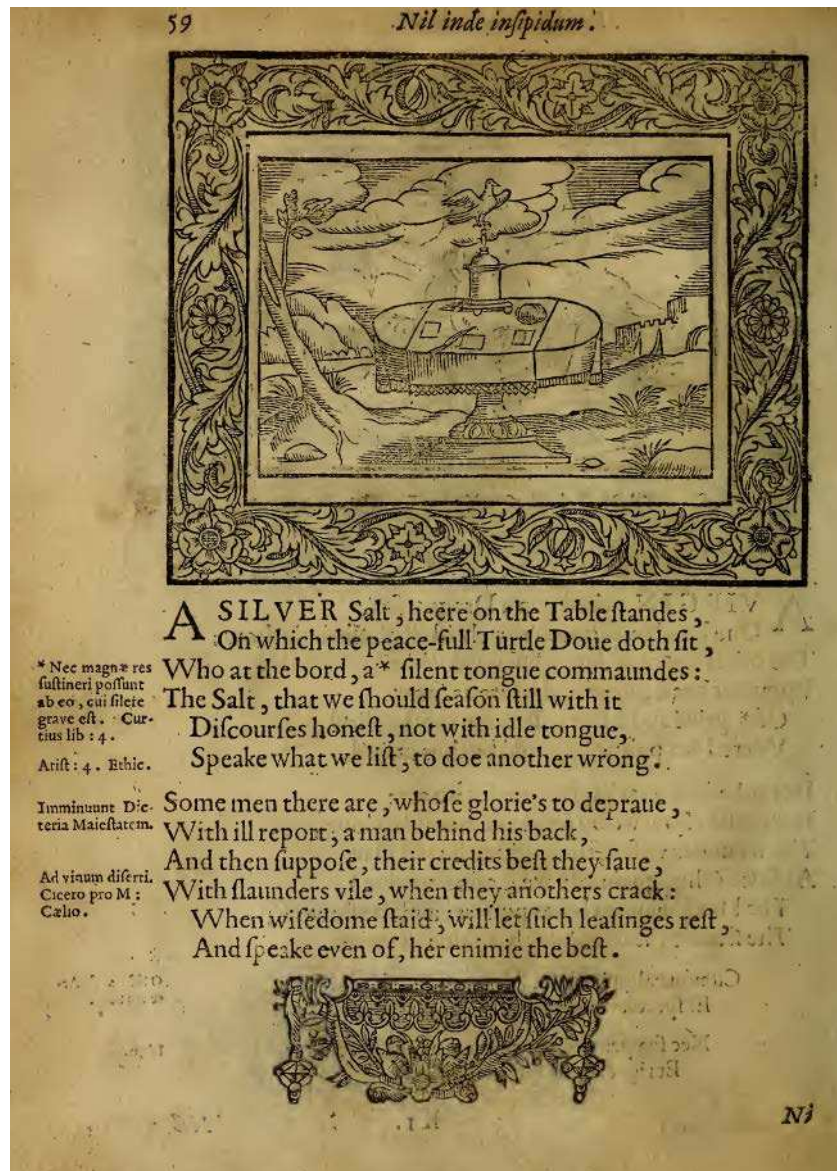 59
Nil inde inſipidum.
A SILVER Salt, heere on the Table ſtandes,
On which the peace-full Turtle Doue doth ſit,
Who at the bord, a* ſilent tongue commaundes:
The Salt, that we ſhould ſeaſon ſtill with it
Diſcourſes honeſt, not with idle tongue,
Speake what we liſt, to doe another wrong.
Some men there are, whoſe glorie's to depraue,
With ill report, a man behind his back,
And then ſuppoſe, their credits beſt they ſaue,
With ſlaunders vile, when they anothers crack:
When wiſedome ſtaid, will let ſuch leaſinges reſt,
And ſpeake even of, her enimie the beſt.
* Nec magnæ res
ſuſtineri poſſunt
ab eo, cui ſilere
grave eſt. Cur-
tius lib: 4.
Ariſt: 4. Ethic.
Imminuunt Dic-
teria Maieſtatem.
Ad vinum diſerti.
Cicero pro M:
Cælio.
Ni